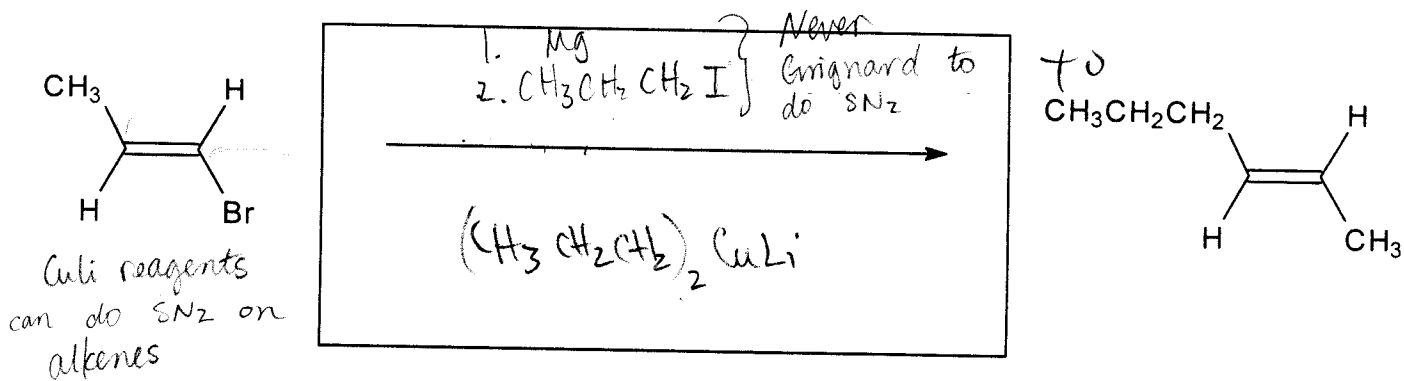 CH₃
H
H
Br
CuLi reagents
can do SN2 on
alkenes
1. Mg
2. CH₃CH₂CH₂I
Never
Grignard to
do SN2
(CH₃CH₂CH₂)₂CuLi
CH₃CH₂CH₂
H
H
CH₃